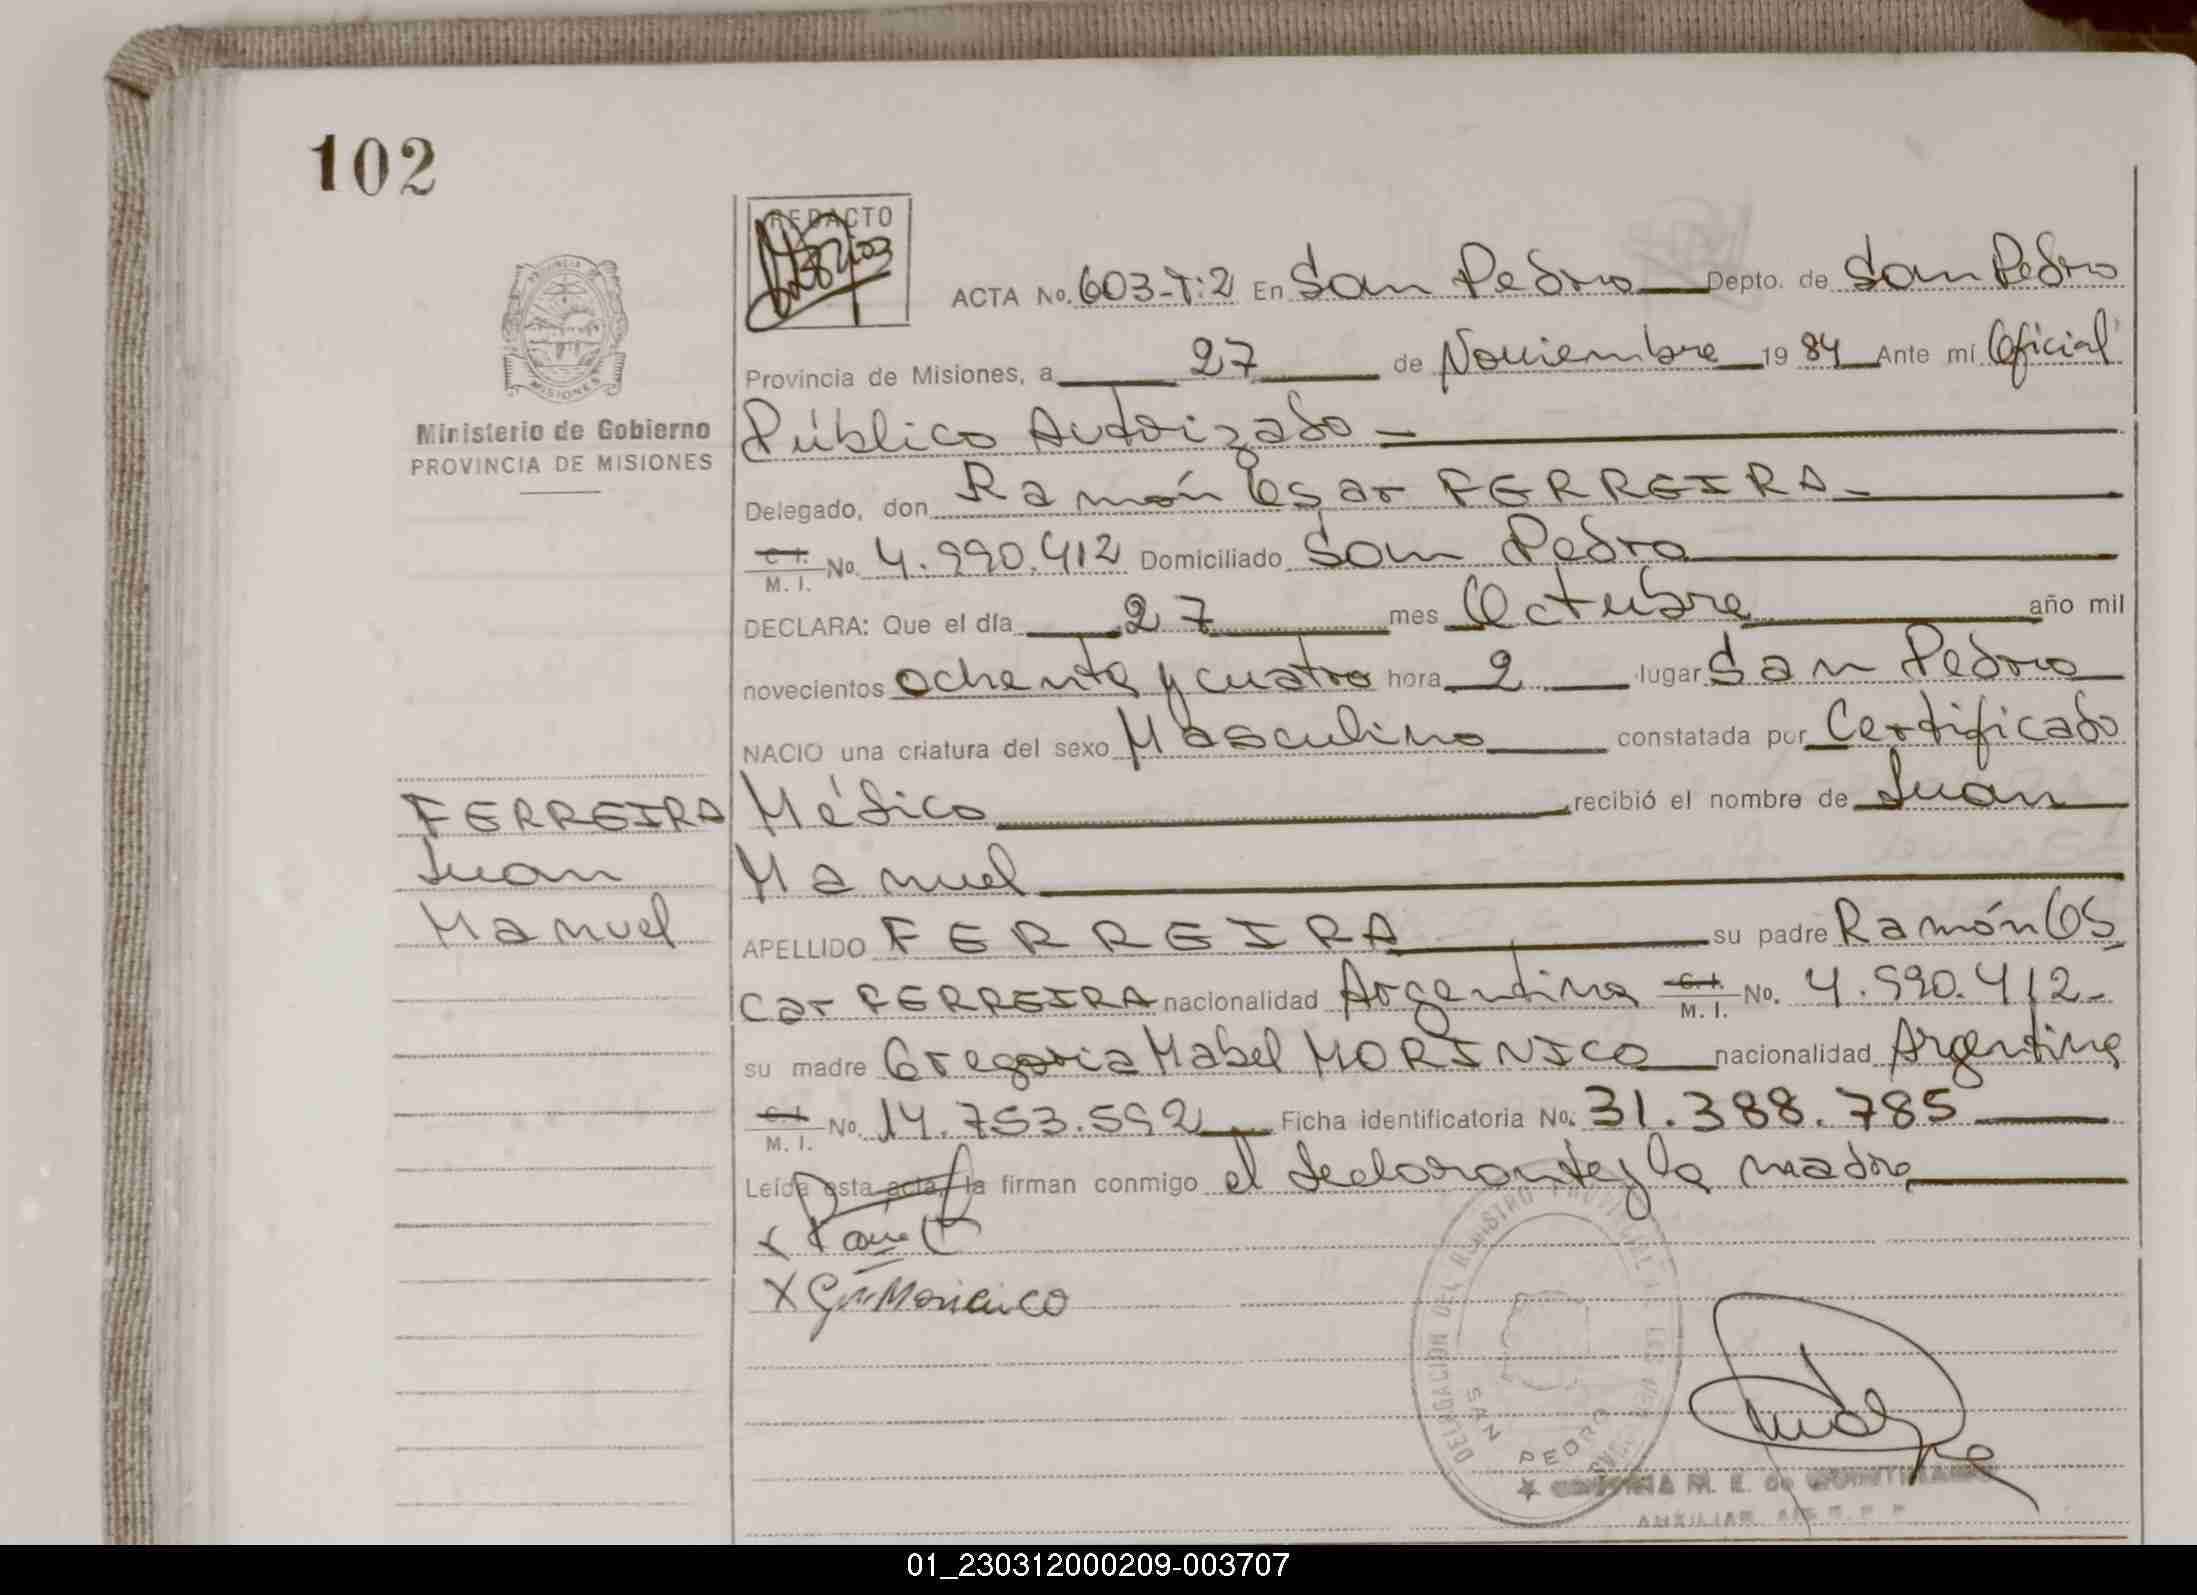 102
REDACTO
ACTA No. 603-T:2 En San Pedro Depto. de San Pedro
Provincia de Misiones, a 27 de Noviembre 19 84 Ante mí Oficial
Ministerio de Gobierno
PROVINCIA DE MISIONES
Público Autorizado
Delegado, don Ramón Oscar FERREIRA
C. I. M. I. No. 4.990.412 Domiciliado San Pedro
DECLARA: Que el día 27 mes Octubre año mil
novecientos ochenta y cuatro hora 2 lugar San Pedro
NACIO una criatura del sexo Masculino constatada por Certificado
Médico recibió el nombre de Juan
Manuel
FERREIRA
Juan
Manuel
APELLIDO FERREIRA su padre Ramón Os
car FERREIRA nacionalidad Argentina C. I. M. I. No. 4.990.412-
su madre Gregoria Mabel MORINICO nacionalidad Argentina
C. I. M. I. No. 14.753.592 Ficha identificatoria No. 31.388.785
Leída esta acta, la firman conmigo el declarante y la madre
X
X Morinico
DELEGACION DEL REGISTRO PROVINCIAL DE LAS PERSONAS
SAN PEDRO
M. E. de QUINTANA
AUXILIAR
01_230312000209-003707